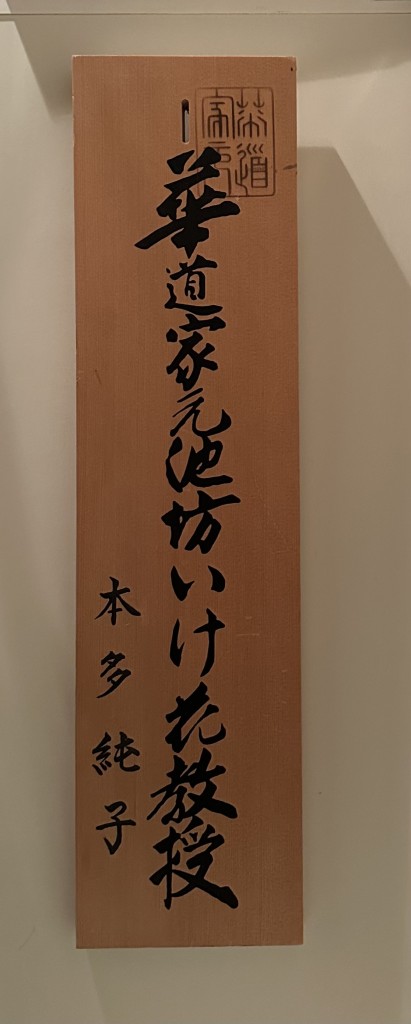 華道家元池坊いけ花教授
本多純子
華道
家元